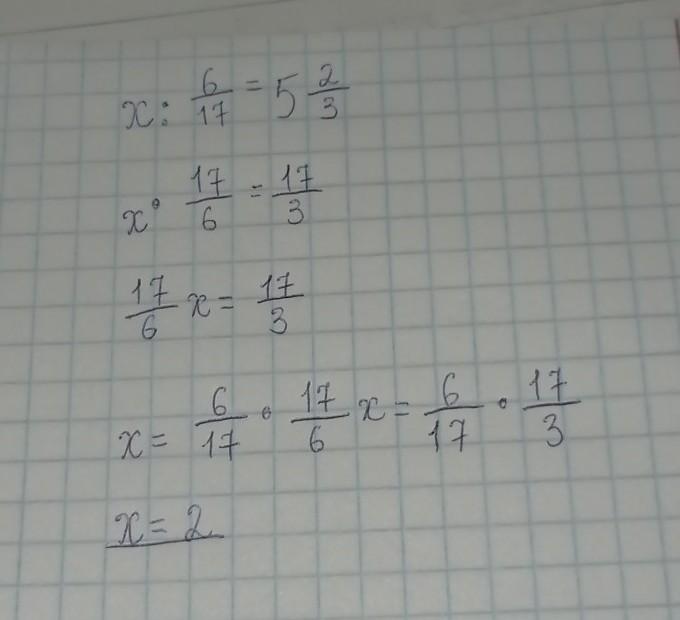 x : 6/17 = 5 2/3
x · 17/6 = 17/3
17/6 x = 17/3
x = 6/17 · 17/6 x = 6/17 · 17/3
x = 2